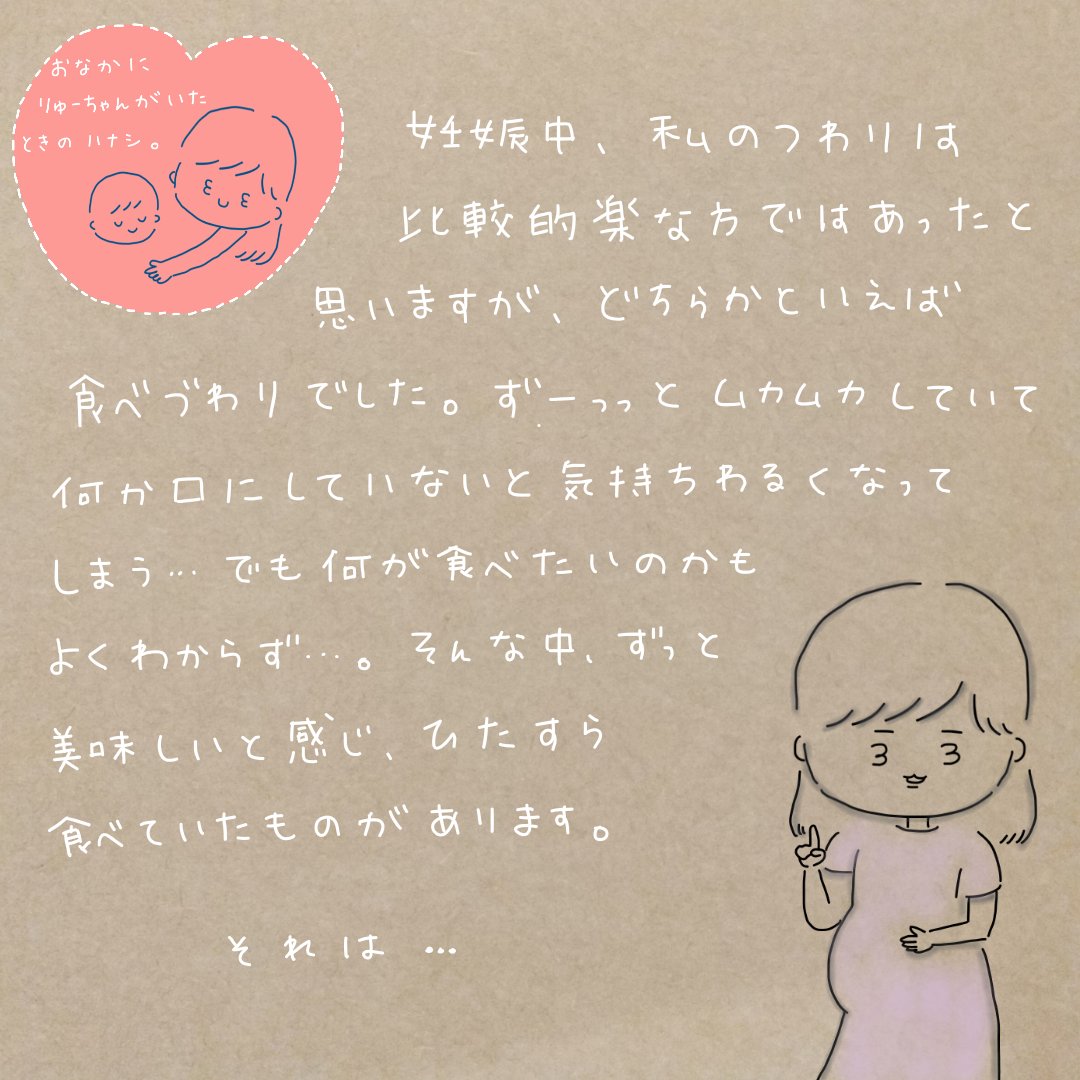 おなかに
りゅーちゃんがいた
ときのハナシ。
妊娠中、私のつわりは
比較的楽な方ではあったと
思いますが、どちらかといえば
食べづわりでした。ずーっっとムカムカしていて
何か口にしていないと気持ちわるくなって
しまう… でも何が食べたいのかも
よくわからず…。そんな中、ずっと
美味しいと感じ、ひたすら
食べていたものがあります。
それは…